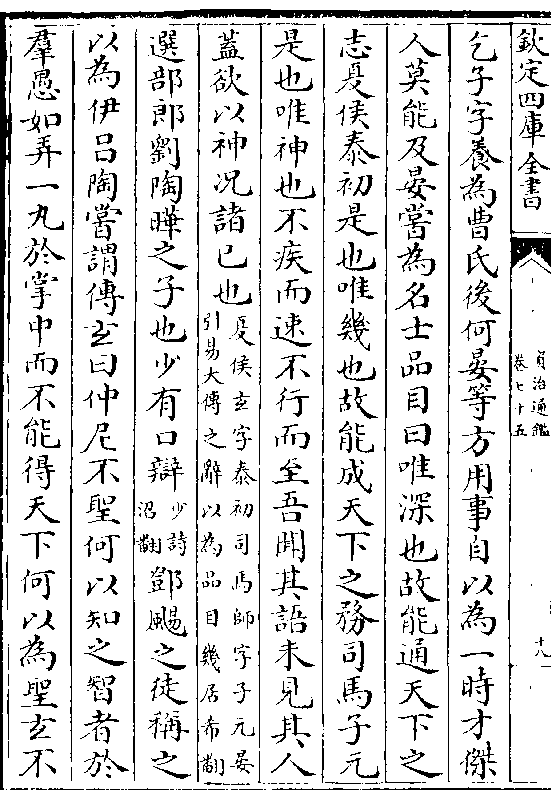 欽定四庫全書
資治通鑑
卷七十五
十九
乞子字養為曹氏後何晏等方用事自以為一時才傑
人莫能及晏嘗為名士品目曰唯深也故能通天下之
志夏侯泰初是也唯幾也故能成天下之務司馬子元
是也唯神也不疾而速不行而至吾聞其語未見其人
蓋欲以神况諸己也夏侯玄字泰初司馬師字子元晏
引易大傳之辭以為品目幾居希翻
選部郎劉陶曄之子也少有口辯少詩
沼翻鄧颺之徒稱之
以為伊吕陶嘗謂傅玄曰仲尼不聖何以知之智者於
羣愚如弄一丸於掌中而不能得天下何以為聖玄不